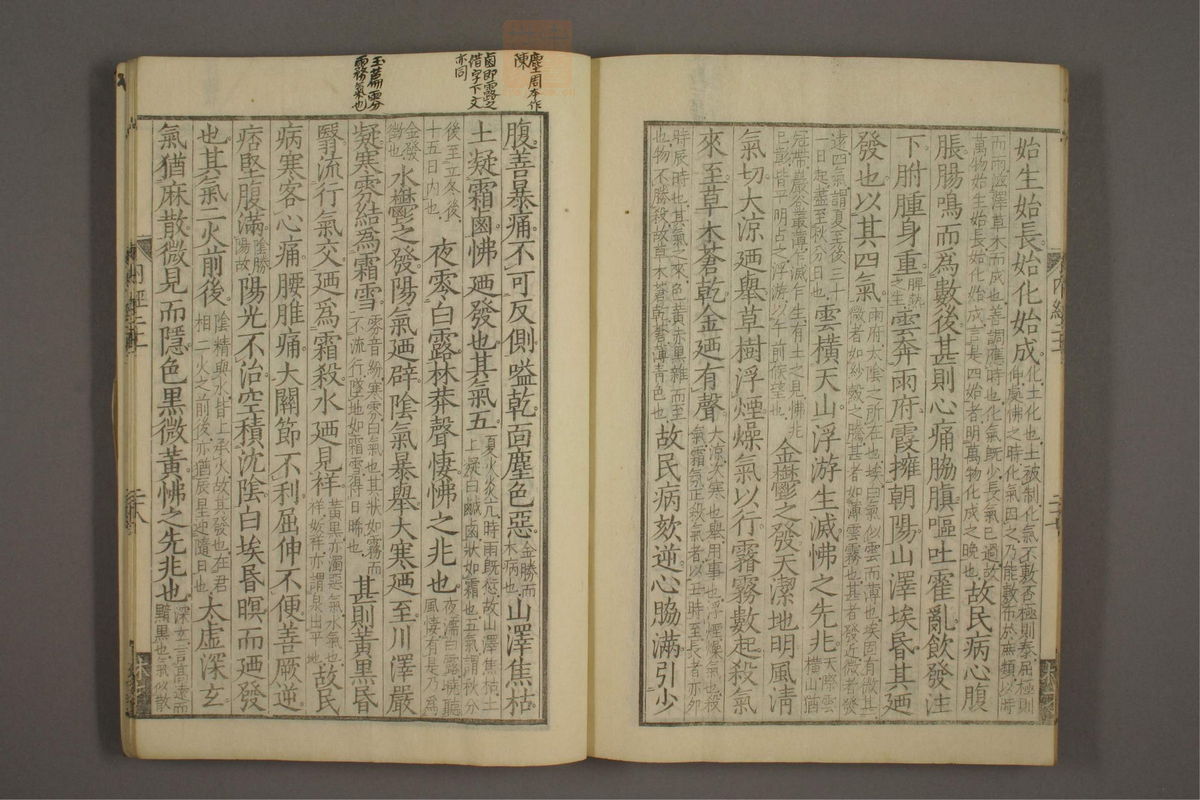 始生始長始化始成化土化也土被制化氣不敷否極則泰屈極則伸處怫之時化氣因之乃能敷布於庶類以時
而雨滋澤草木而成也善調應時也化氣既少長氣已過故萬物始生始長始化始成言是四始者明萬物化成之晚也故民病心腹
脹腸鳴而爲數後甚則心痛脇䐜嘔吐霍亂飲發注
下胕腫身重脾熱之生雲奔雨府霞擁朝陽山澤埃昏其廼
發也以其四氣雨府太陰之所在也埃白氣似雲而薄也埃固有微甚微者如紗縠之騰甚者如薄雲霧也甚者發近微者發
遠四氣謂夏至後三十一日起盡至秋分日也雲橫天山浮游生滅怫之先兆天際雲橫山猶
冠帶巖谷叢薄乍滅乍生有土之見怫兆已彰皆平明占之浮游以午前候望也金鬱之發天潔地明風清
氣切大涼廼舉草樹浮煙燥氣以行霿霧數起殺氣
來至草木蒼乾金廼有聲大涼次寒也舉用事也浮煙燥氣也殺氣霜氛正殺氣者以丑時至長者亦卯
時辰時也其氣之來色黃赤黑雜而至也物不勝殺故草木蒼乾蒼薄青色也故民病欬逆心脇滿引少
內經二十一
塵周本作陳
鹵即露之借字下文亦同
玉篇雰雨雺氣也
腹善暴痛不可反側嗌乾面塵色惡金勝而木病也山澤焦枯
土凝霜鹵怫廼發也其氣五夏火炎亢時雨既愆故山澤焦枯土上凝白鹹鹵狀如霜也五氣謂秋分
後至立冬後十五日內也夜零白露林莽聲悽怫之兆也夜濡白露曉聽風悽有是乃爲
金發徵也水鬱之發陽氣廼辟陰氣暴舉大寒廼至川澤嚴
凝寒雰結爲霜雪雰音紛寒雰白氣也其狀如霧而不流行墜地如霜雪得日晞也甚則黃黑昏
翳流行氣交廼爲霜殺水廼見祥黃黑亦濁惡氣水氣也祥妖祥亦謂泉出平地故民
病寒客心痛腰脽痛大關節不利屈伸不便善厥逆
痞堅腹滿陰勝陽故陽光不治空積沈陰白埃昏暝而廼發
也其氣二火前後陰精與水皆上承火故其發也在君相二火之前後亦猶辰星迎隨日也太虛深玄
氣猶麻散微見而隱色黑微黃怫之先兆也深玄言高遠而黯黑也氣似散
內經二十一
二十八